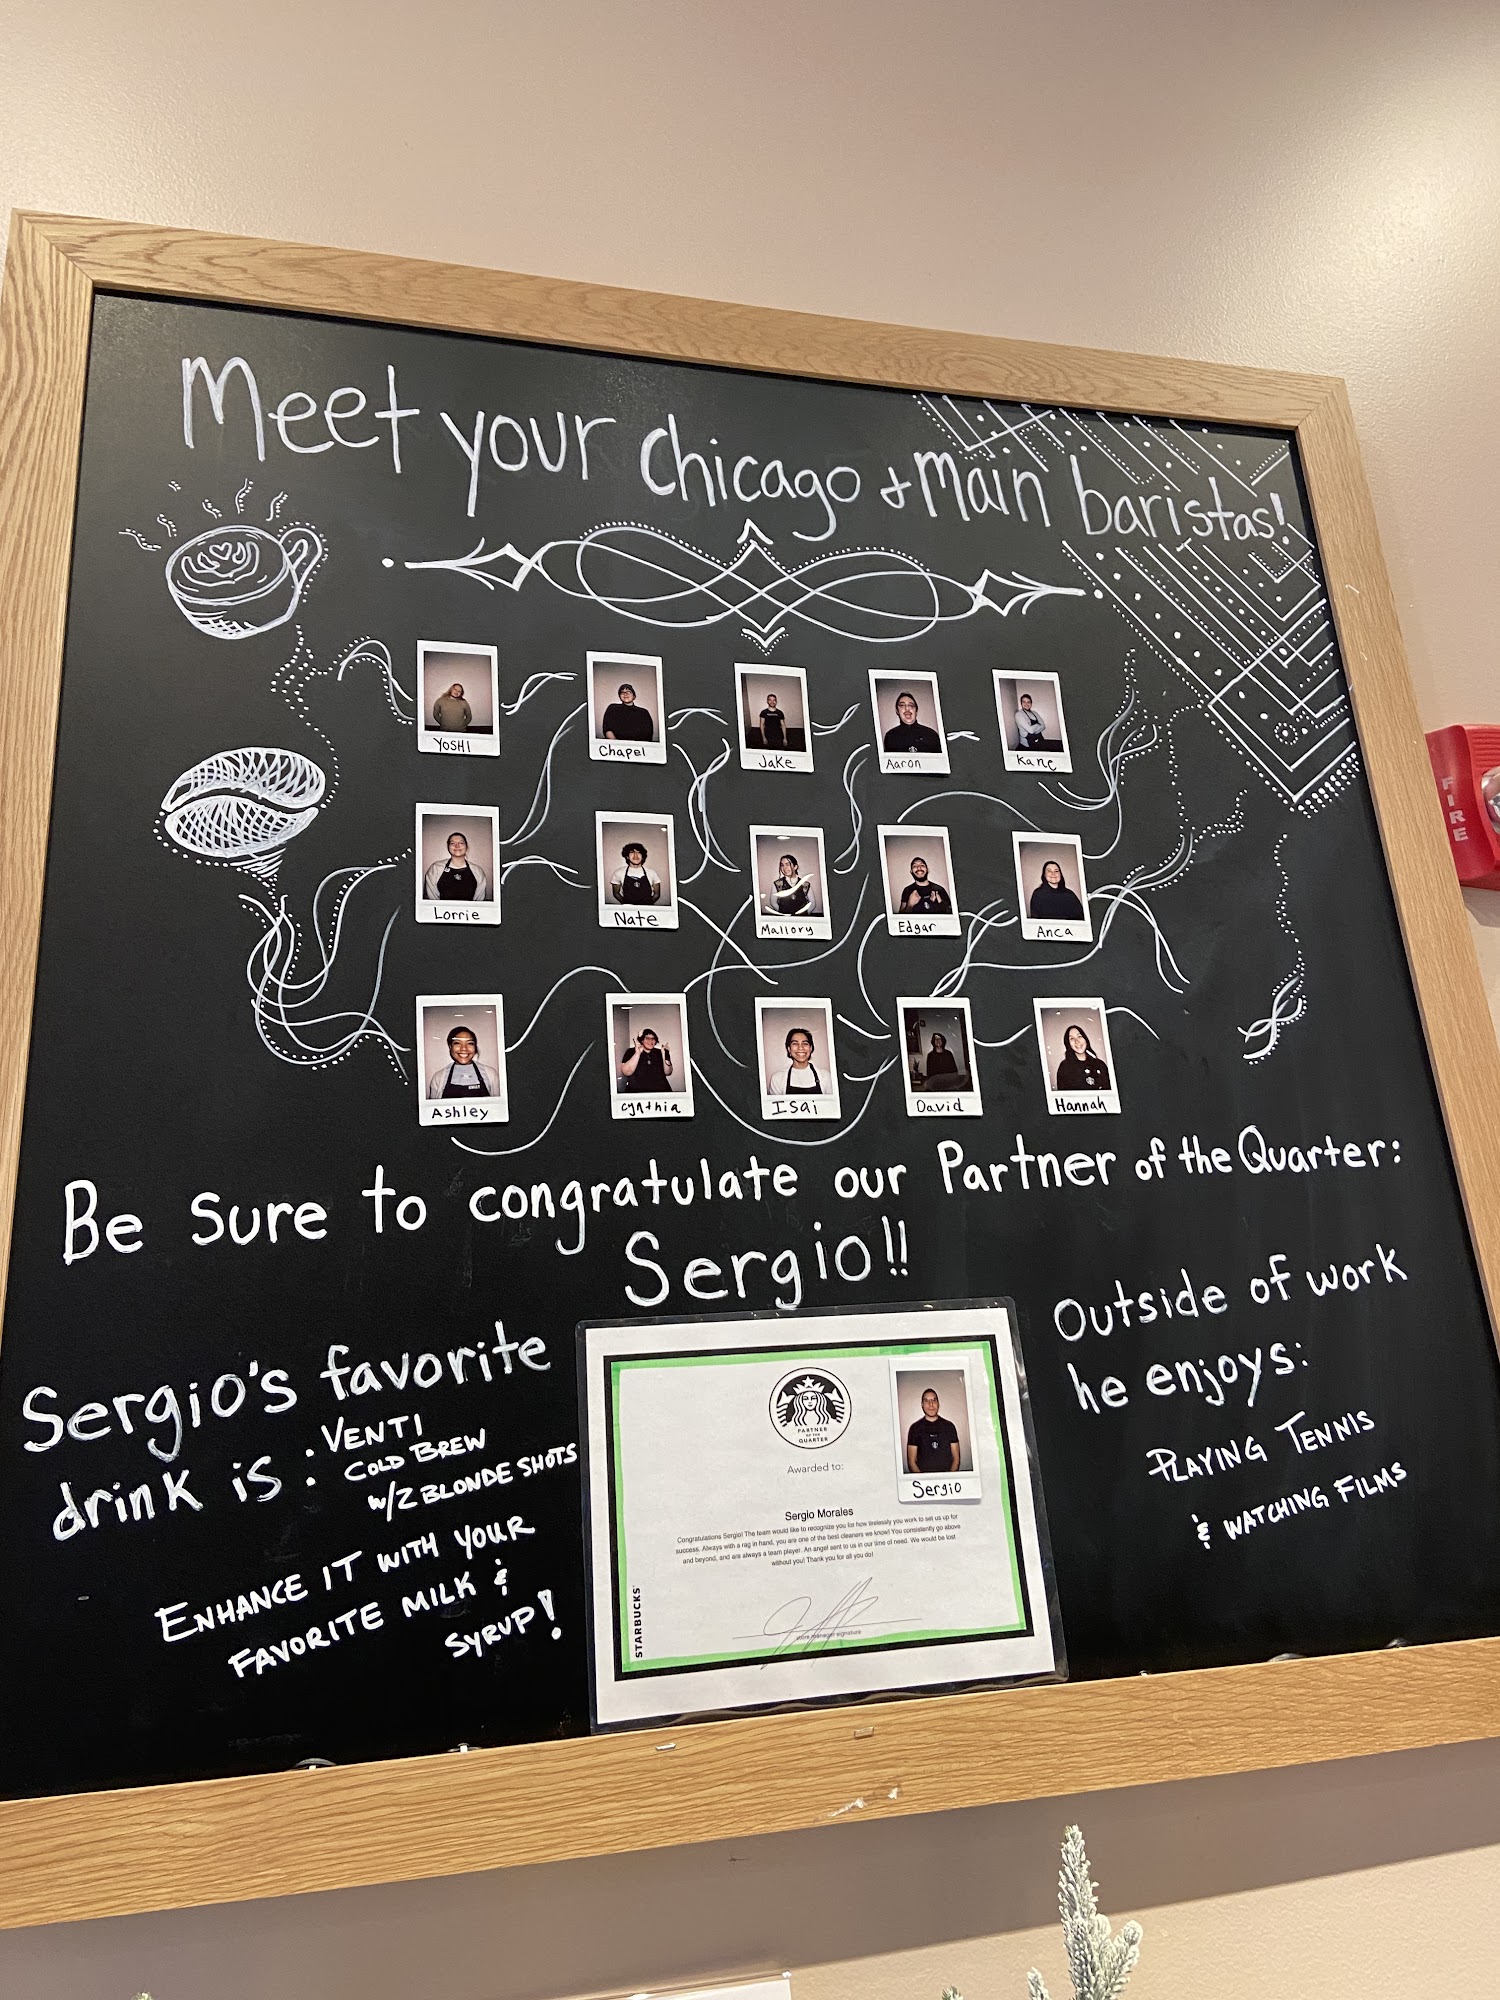 Meet your Chicago & Main baristas!
YOSHI
Chapel
Jake
Aaron
Kane
Lorrie
Nate
Mallory
Edgar
Anca
Ashley
Cynthia
Isai
David
Hannah
Be sure to congratulate our Partner of the Quarter:
Sergio!!
Sergio's favorite
drink is: VENTI
COLD BREW
W/2 BLONDE SHOTS
ENHANCE IT WITH YOUR
FAVORITE MILK &
SYRUP!
PARTNER
OF THE
QUARTER
Awarded to:
Sergio
Sergio Morales
Congratulations Sergio! The team would like to recognize you for how tirelessly you work to set us up for
success. Always with a rag in hand, you are one of the best cleaners we know! You consistently go above
and beyond, and are always a team player. An angel sent to us in our time of need. We would be lost
without you! Thank you for all you do!
store manager signature
STARBUCKS
Outside of work
he enjoys:
PLAYING TENNIS
& WATCHING FILMS
FIRE